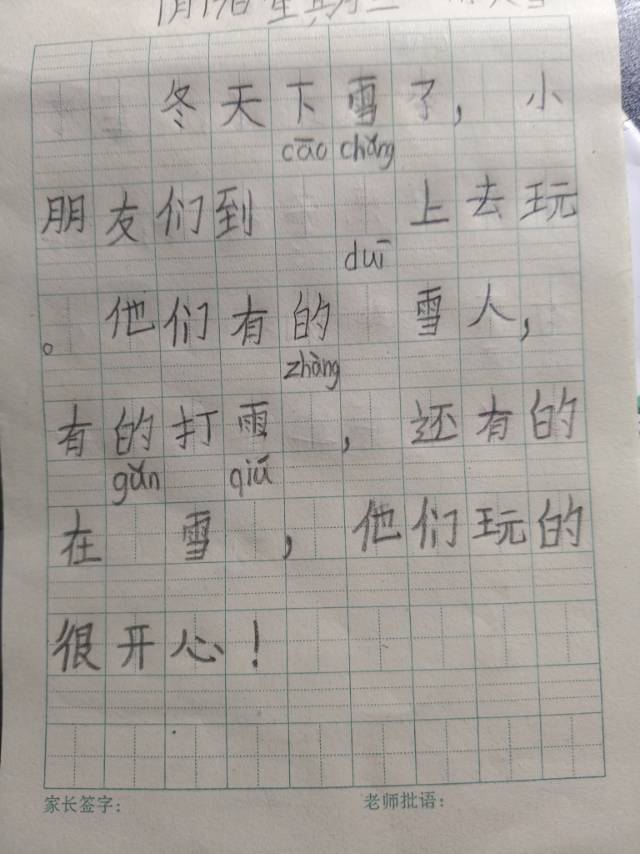 冬天下雪了，小
cāo chǎng
朋友们到 上去玩
duī
。他们有的 雪人，
zhàng
有的打雨 ，还有的
gǔn qiú
在 雪 ，他们玩的
很开心！
家长签字： 老师批语：